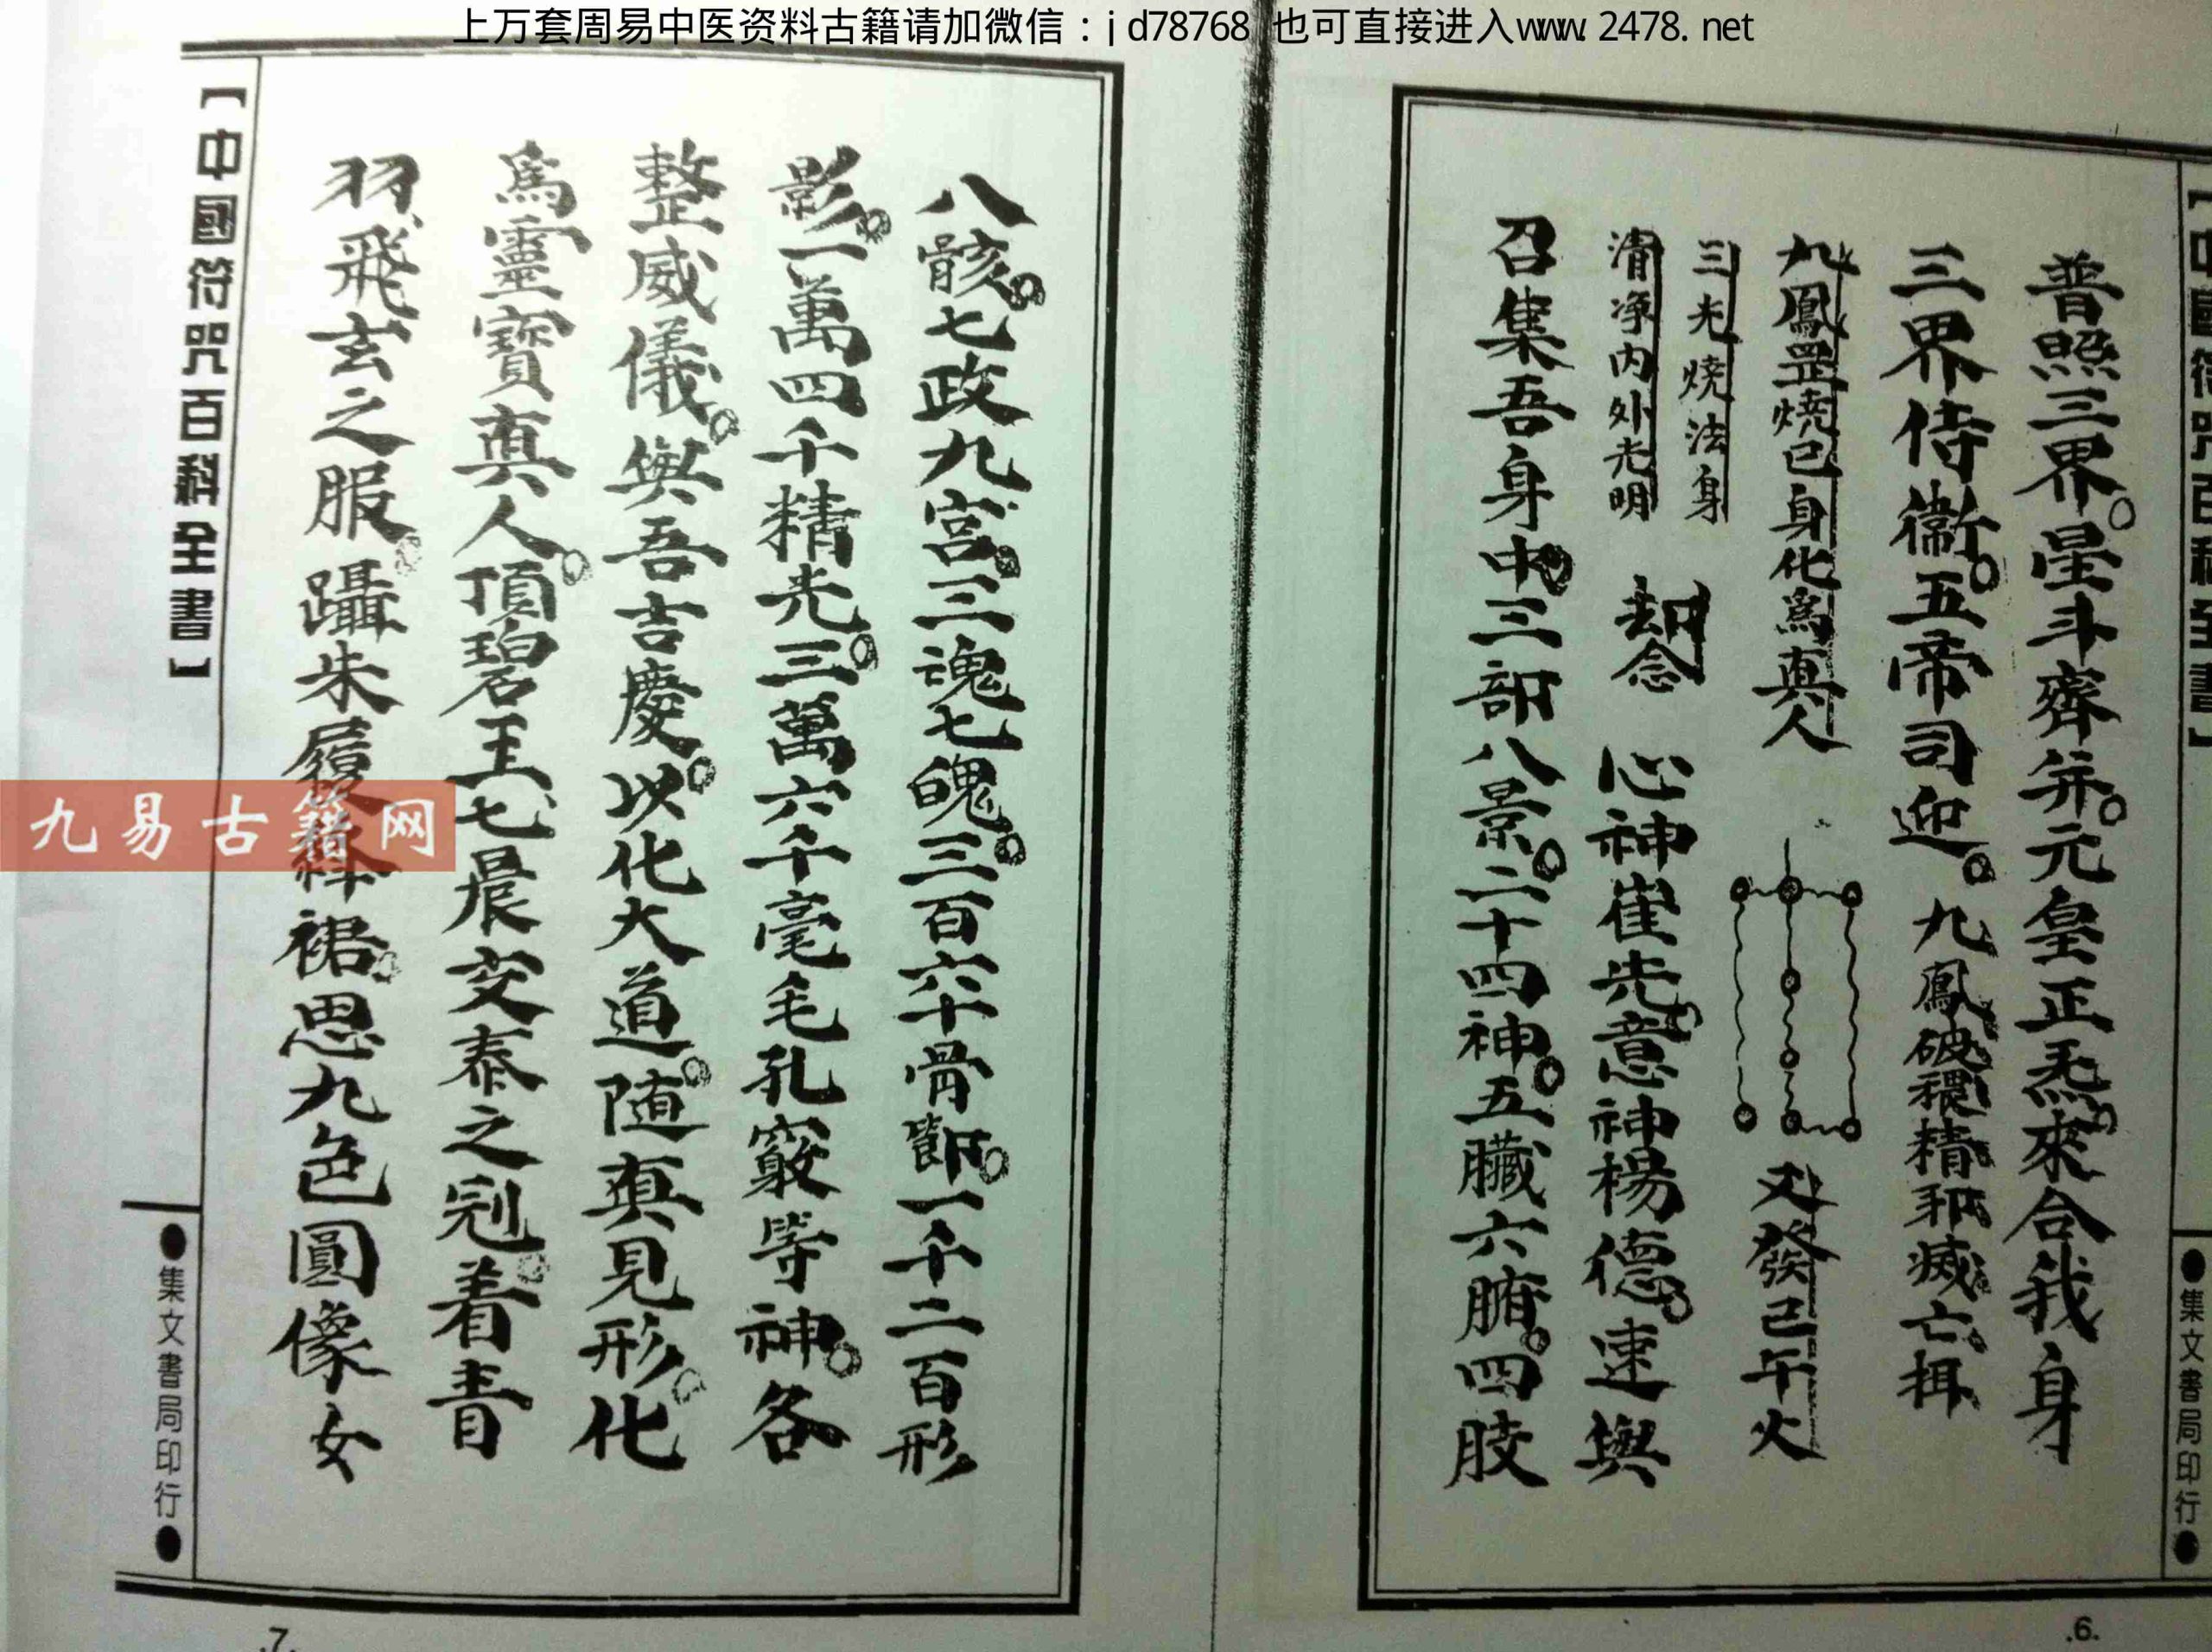 上万套周易中医资料古籍请加微信：jd78768 也可直接进入www.2478.net
普照三界。星斗齊并。元皇正炁。來合我身
三界侍衞。五帝司迎。九鳳破穢精邪滅亡揖
九鳳罡燒己身化為真人
又發己午火
三光燒法身
清净内外光明
却念
心神崔先。意神楊德。速與
召集吾身中。三部八景。二十四神。五臟六腑。四肢
.6.
●集文書局印行●
八骸。七政九宮。三魂七魄。三百六十骨節。一千二百形
影。一萬四千精光。三萬六千毫毛孔竅等神。各
整威儀。與吾吉慶。以化大道。随真見形。化
為靈寶真人。頂碧玉七晨交泰之冠。着青
羽飛玄之服。躡朱履絳裙。思九色圓像女
【中國符咒百科全書】
●集文書局印行●
.7.
九易古籍网